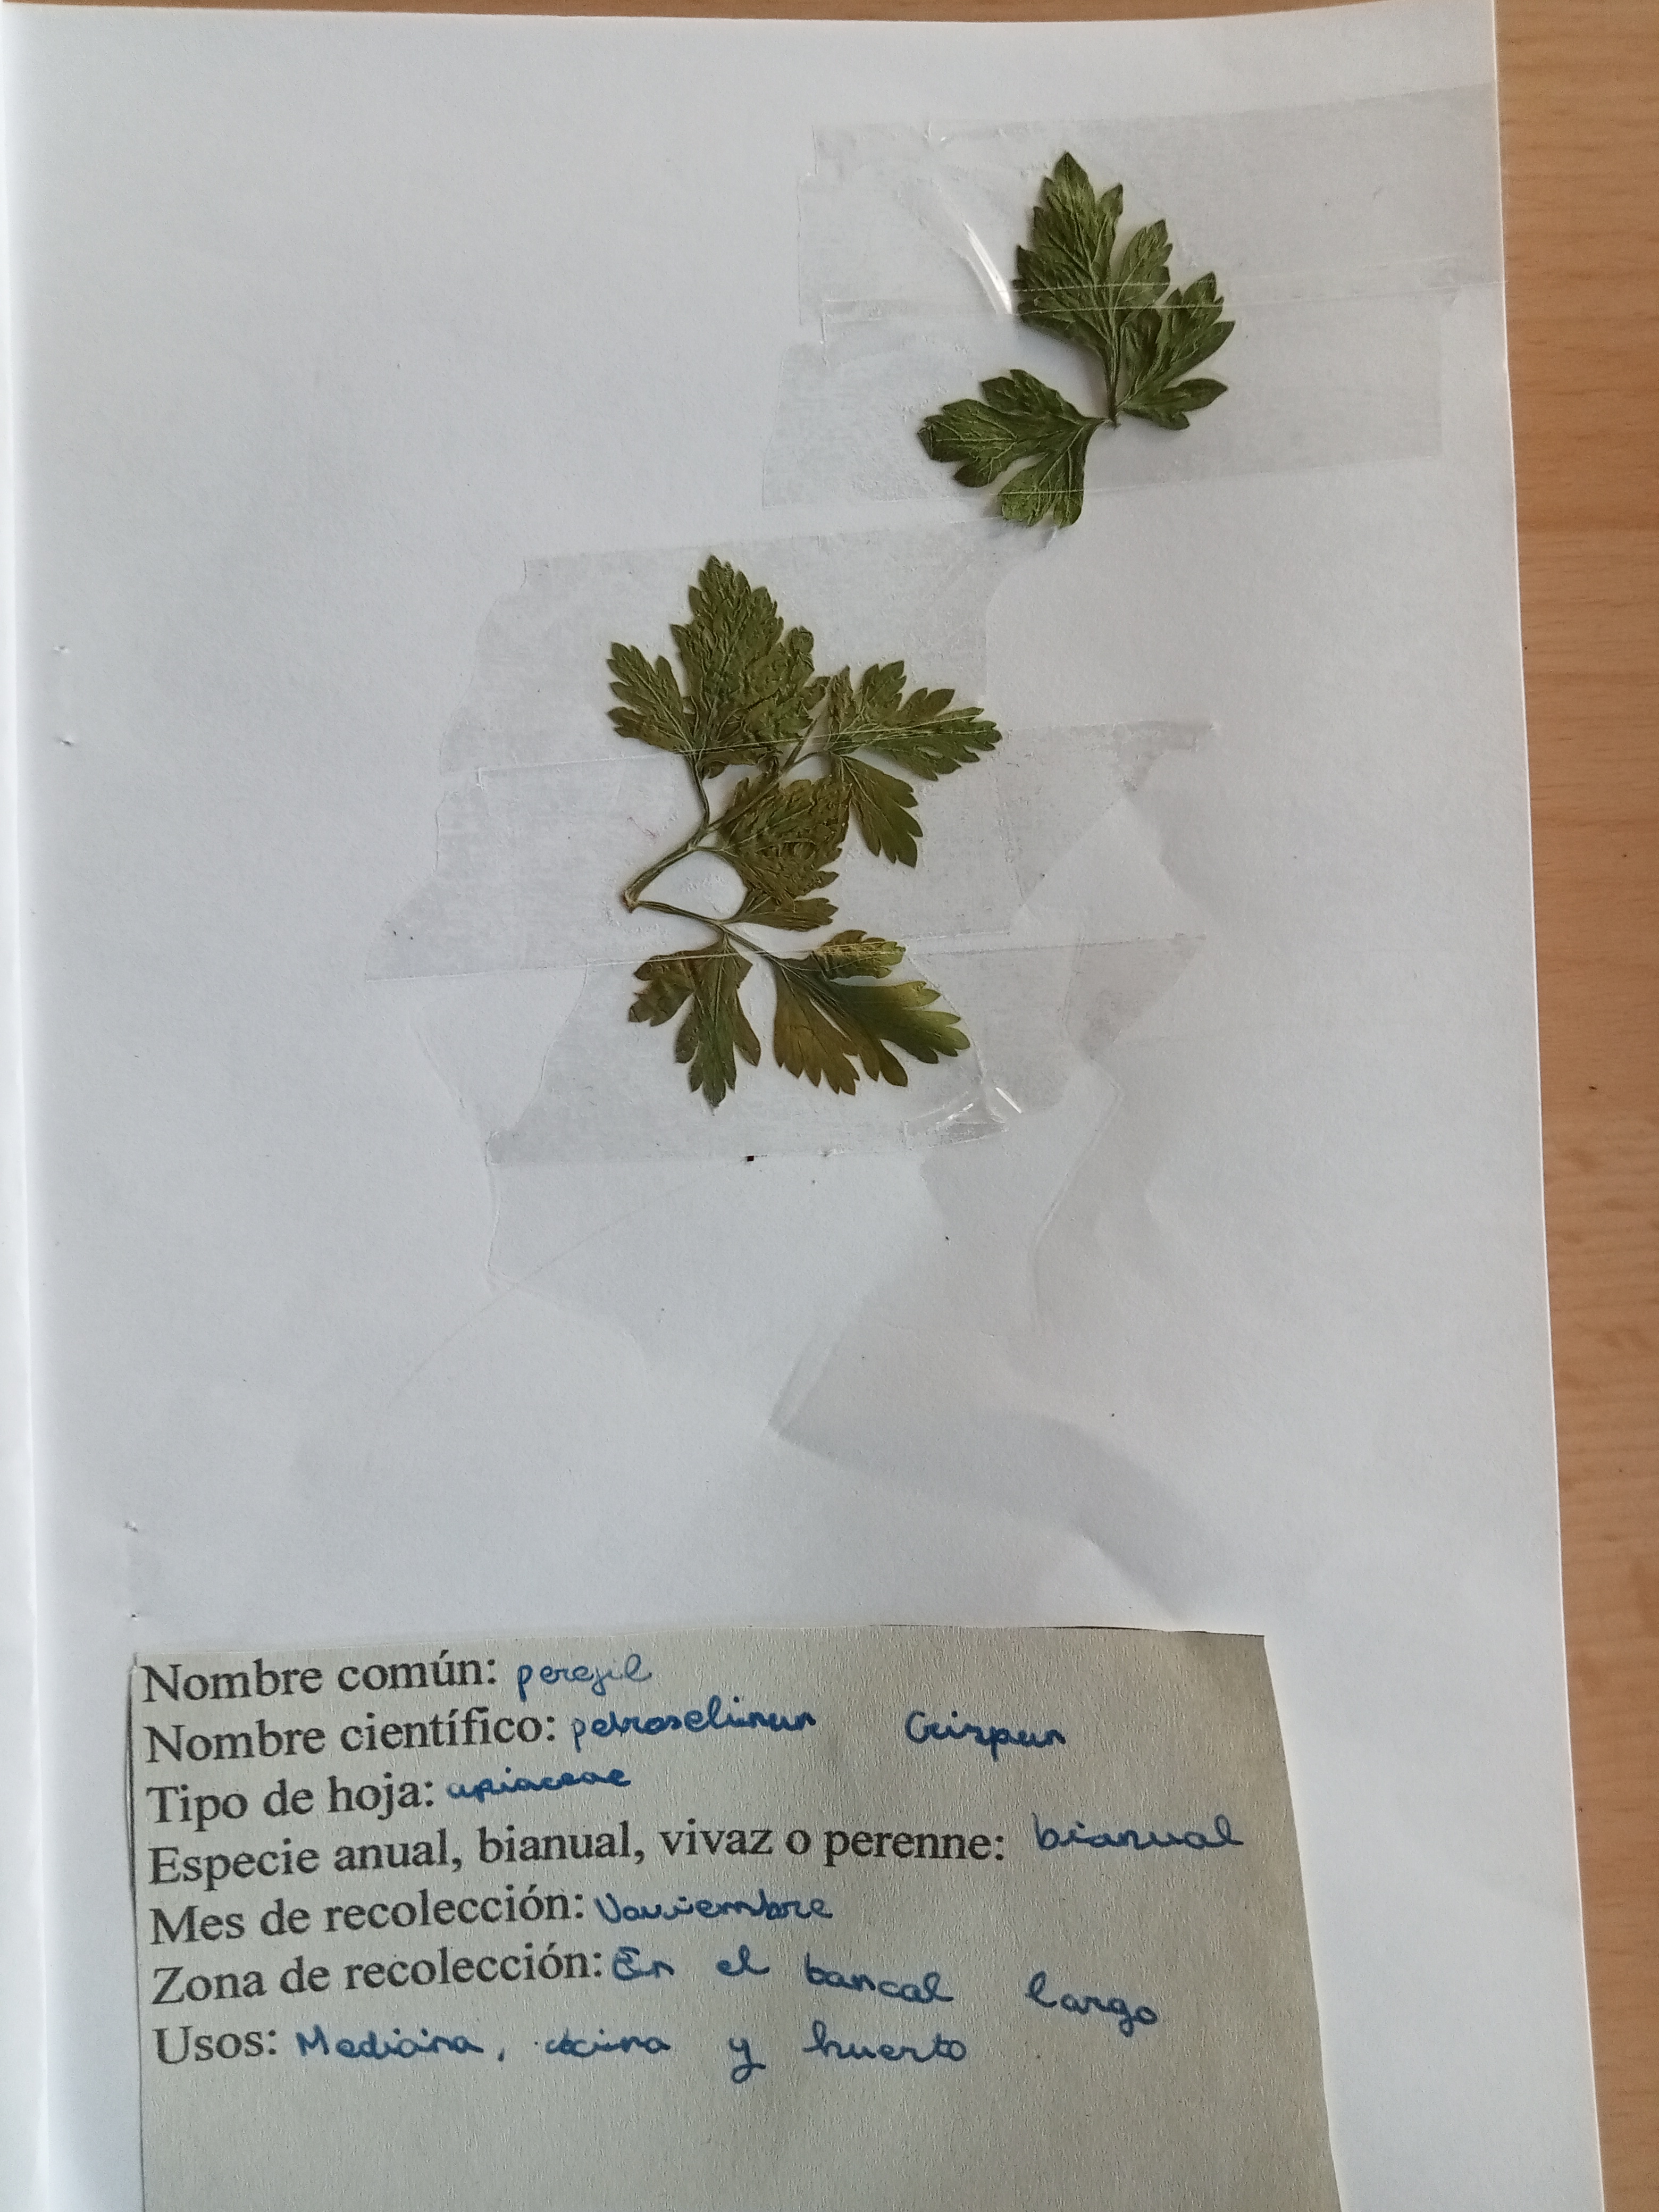 Nombre común: perejil
Nombre científico: petroselinun Crispun
Tipo de hoja: apiaceae
Especie anual, bianual, vivaz o perenne: bianual
Mes de recolección: Noviembre
Zona de recolección: En el bancal largo
Usos: Medicina, cocina y huerto